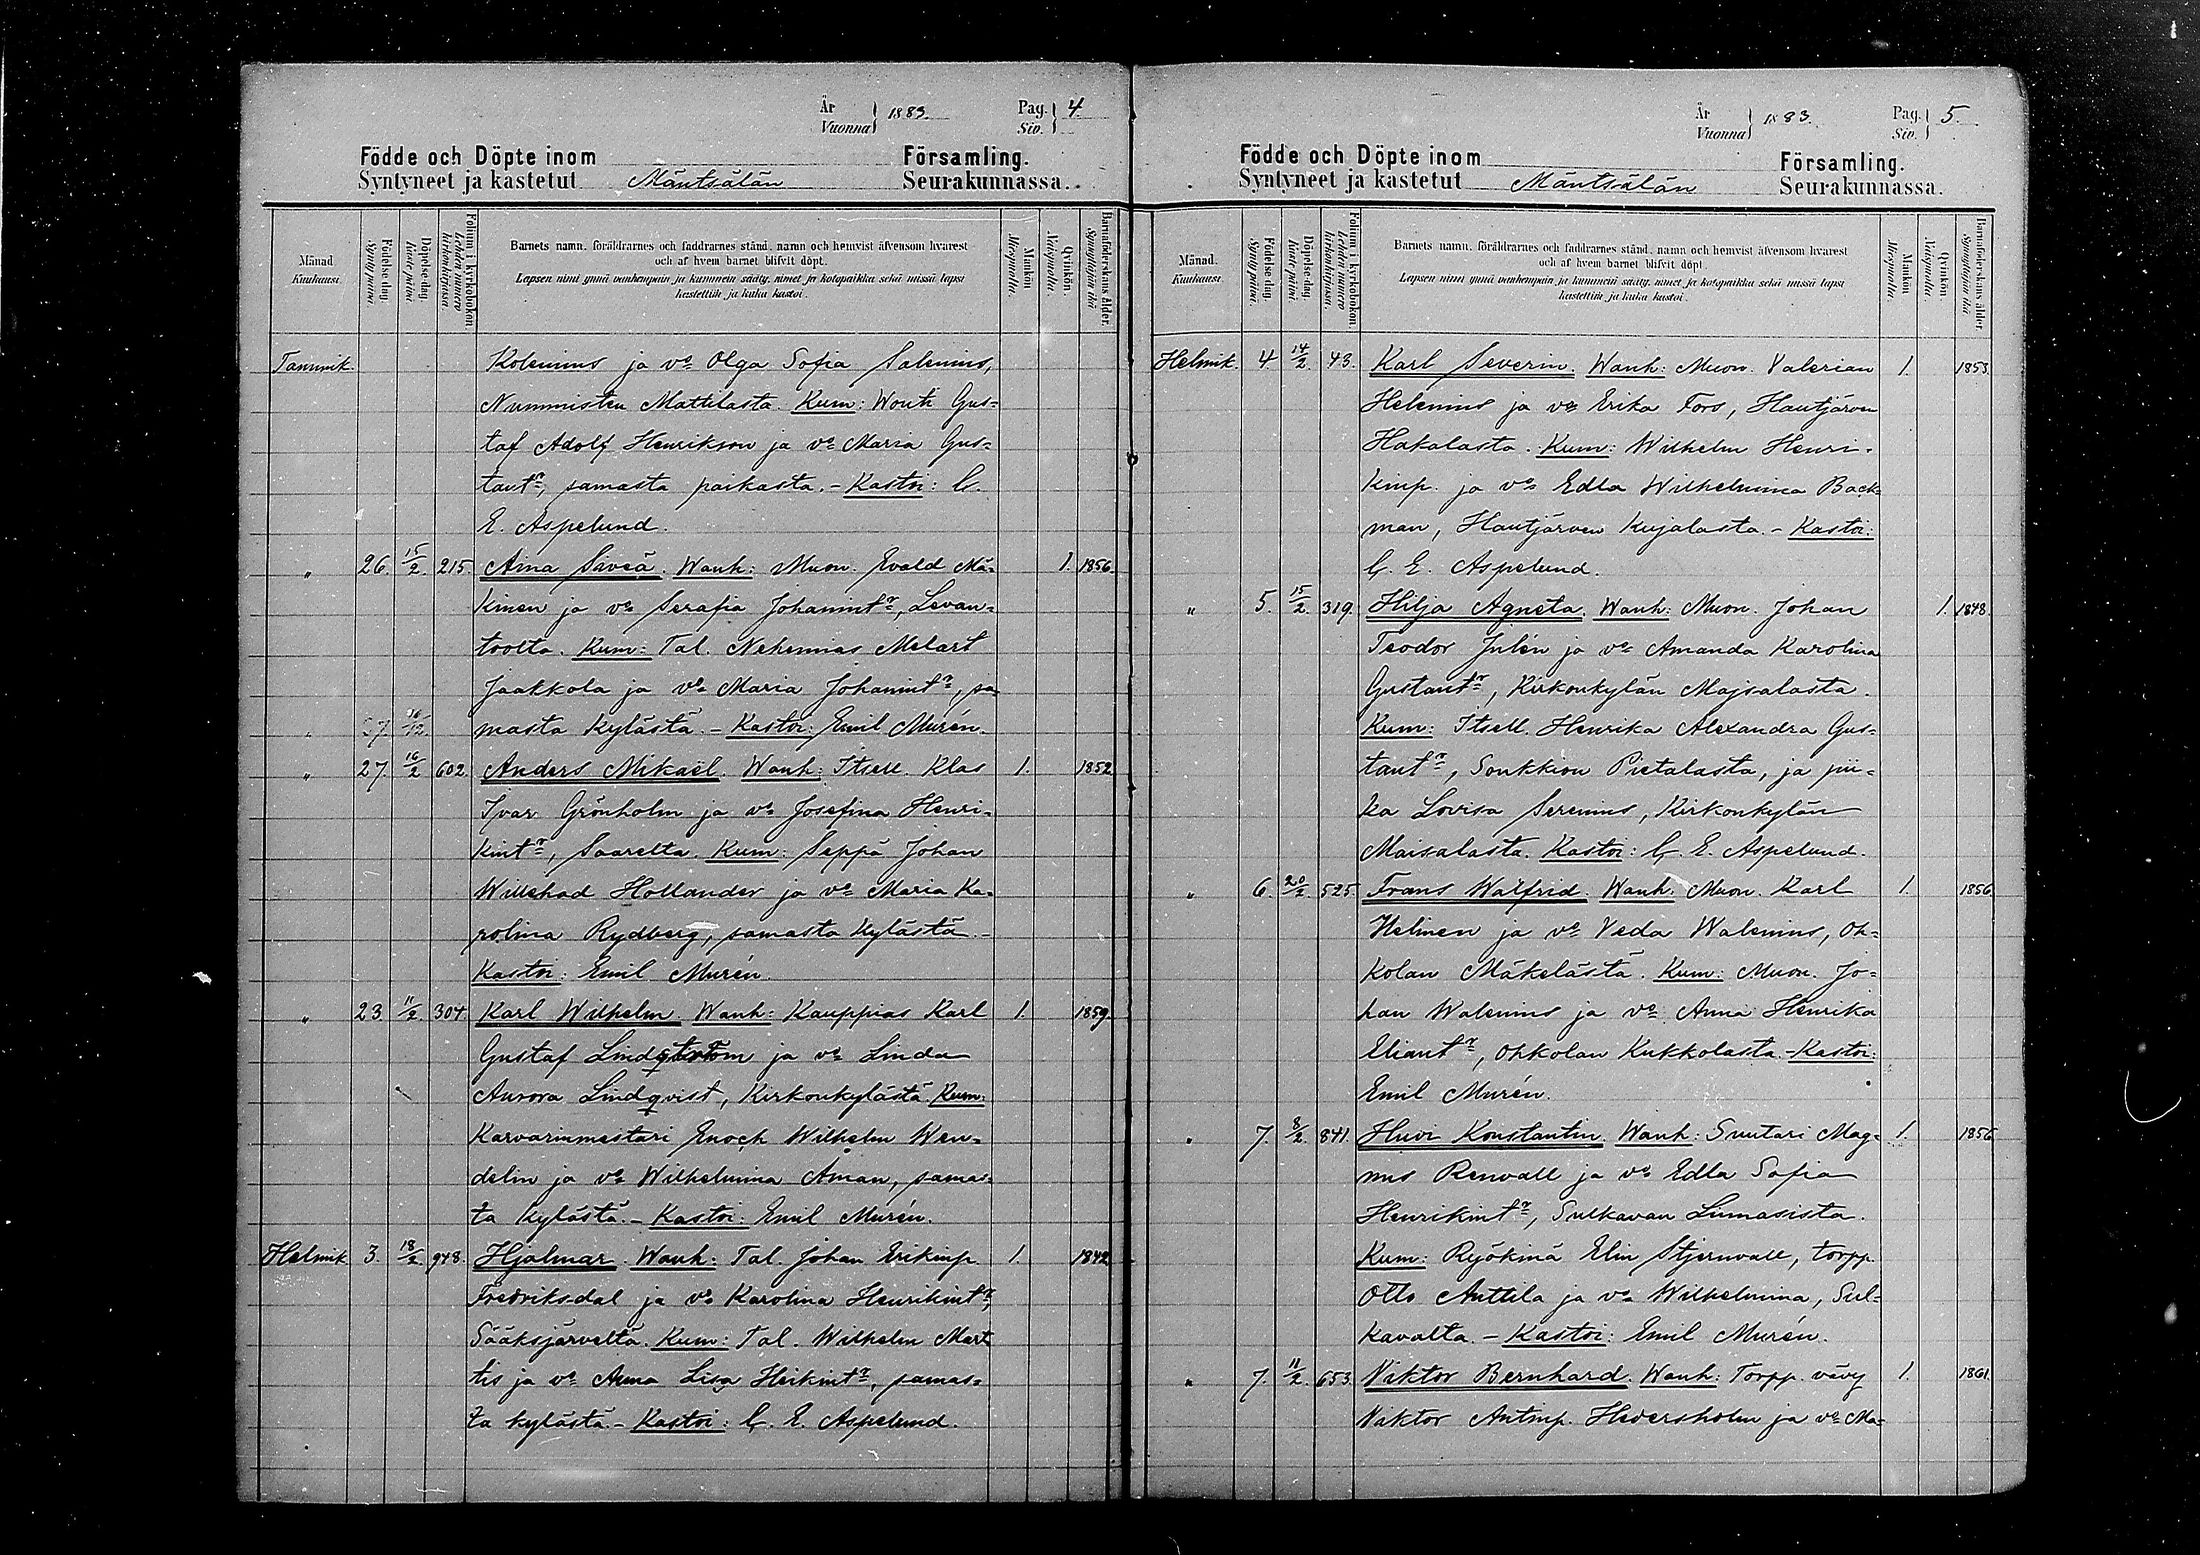 År
Vuonna } 1883.
Pag.
Siv. } 4.
Födde och Döpte inom
Syntyneet ja kastetut Mäntsälän
Församling.
Seurakunnassa.
Månad.
Kuukausi.
Födelse dag.
Synty päivä.
Döpelse dag.
Kaste päivä.
Folium i kyrkoboken.
Lehden numero kirkonkirjassa.
Barnets namn, föräldrarnes och faddrarnes stånd, namn och hemvist äfvensom hvarest
och af hvem barnet blifvit döpt.
Lapsen nimi ynnä vanhempain ja kummein sääty, nimet ja kotopaikka sekä missä lapsi
kastettiin ja kuka kastoi.
Mankön
Miespuolta.
Qvinkön.
Naispuolta.
Barnaföderskans ålder.
Synnyttäjän ikä
Tammik. Kolenius ja vo Olga Sofia Salenius,
Nummisten Mattilasta. Kum: Wouti Gus=
taf Adolf Henrikson ja vo Maria Gus=
tant:r, samasta paikasta. - Kastoi: C.
E. Aspelund.
" 26. 15/2. 215. Aina Siveä. Wanh: Muon. Evald Mä= 1. 1856.
kinen ja vo Serafia Johannint:r, Levan=
tolta. Kum: Tal. Nehemias Melart
Jaakkola ja vo Maria Johannint:r, sa=
" 27. 16/12 masta kylästä. - Kastoi: Emil Murén.
" 27. 16/2 602. Anders Mikaël. Wanh: Itsell. Klas 1. 1852
Ivar Grönholm ja vo Josefina Henri=
kint:r, Saarelta. Kum: Seppä Johan
Willehad Hollander ja vo Maria Ka=
rolina Rydberg, samasta kylästä. -
Kastoi: Emil Murén.
" 23 11/2. 304 Karl Wilhelm. Wanh: Kauppias Karl 1. 1859.
Gustaf Lindström ja vo Linda
Aurora Lindqvist, Kirkonkylästä. Kum:
Karvarinmestari Enoch Wilhelm Wen=
delin ja vo Wilhelmina Åman, samas=
ta kylästä. - Kastoi: Emil Murén.
Helmik. 3. 18/2. 948. Hjalmar. Wanh: Tal. Johan Erikinp. 1. 1842
Fredriksdal ja vo Karolina Henrikint:r,
Sääksjärveltä. Kum: Tal. Wilhelm Mart=
tis ja vo Anna Lisa Heikint:r, samas=
ta kylästä. - Kastoi: C. E. Aspelund.
År
Vuonna } 1883.
Pag.
Siv. } 5.
Födde och Döpte inom
Syntyneet ja kastetut Mäntsälän
Församling.
Seurakunnassa.
Månad.
Kuukausi.
Födelse dag.
Synty päivä.
Döpelse dag.
Kaste päivä.
Folium i kyrkoboken.
Lehden numero kirkonkirjassa.
Barnets namn, föräldrarnes och faddrarnes stånd, namn och hemvist äfvensom hvarest
och af hvem barnet blifvit döpt.
Lapsen nimi ynnä vanhempain ja kummein sääty, nimet ja kotopaikka sekä missä lapsi
kastettiin ja kuka kastoi.
Mankön
Miespuolta.
Qvinkön
Naispuolta
Barnaföderskans ålder.
Synnyttäjän ikä
Helmik. 4 14/2. 43. Karl Severin. Wanh: Muon. Valerian 1. 1853.
Helenius ja vo Erika Fors, Hautjärven
Hakalasta. Kum: Wilhelm Henri=
kinp. ja vo Edla Wilhelmina Back=
man, Hautjärven Kujalasta. - Kastoi:
C. E. Aspelund.
" 5. 15/2. 319. Hilja Agneta. Wanh: Muon. Johan 1. 1848.
Teodor Julén ja vo Amanda Karolina
Gustant:r, Kirkonkylän Majsalasta.
Kum: Itsell. Henrika Alexandra Gus=
tant:r, Soukkion Pietalasta, ja pii=
ka Lovisa Serenius, Kirkonkylän
Maisalasta. Kastoi: C. E. Aspelund.
" 6. 20/2. 525. Frans Walfrid. Wanh: Muon. Karl 1. 1856.
Helinen ja vo Veda Walenius, Oh=
kolan Mäkelästä. Kum: Muon. Jo=
han Walenius ja vo Anna Henrika
Eliant:r, Ohkolan Kukkolasta. - Kastoi:
Emil Murén.
" 7. 8/2. 841. Huvi Konstantin. Wanh: Suutari Mag= 1. 1856
nus Renvall ja vo Edla Sofia
Henrikint:r, Sulkavan Liinasista.
Kum: Ryökinä Elin Stjernvall, torpp.
Otto Anttila ja vo Wilhelmina, Sul=
kavalta. - Kastoi: Emil Murén.
" 7. 11/2. 653. Viktor Bernhard. Wanh: Torpp. vävy 1. 1861.
Viktor Antinp. Hedersholm ja vo Ma=